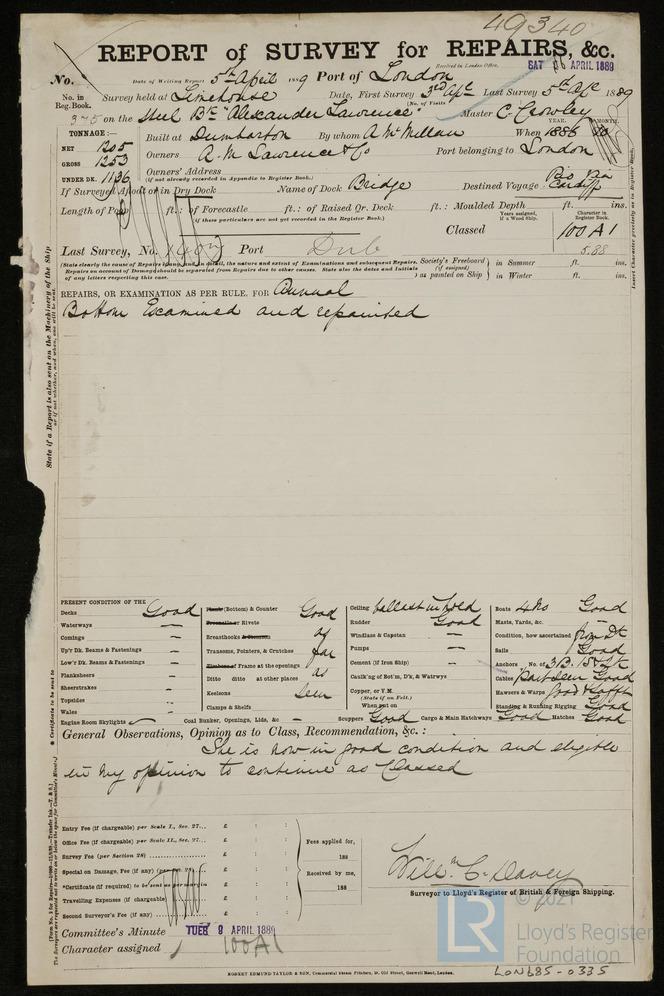 49340
REPORT of SURVEY for REPAIRS, &c.
Received in London Office.
SAT APRIL 1889
No. Date of Writing Report 5th April 1889 Port of London
No. in Reg. Book. Survey held at Limehouse Date, First Survey 3rd Apl Last Survey 5th Apl 1889
(No. of Visits
on the Steel Bk "Alexander Lawrence" Master C. Crowley
TONNAGE:—
YEAR. MONTH.
NET 1205 Built at Dumbarton By whom A McMillan When 1886
GROSS 1253 Owners A. M Lawrence & Co Port belonging to London
UNDER DK. 1136 Owners' Address
(if not already recorded in Appendix to Register Book.)
If Surveyed Afloat or in Dry Dock Name of Dock Bridge Destined Voyage Rio via Cardiff
Length of Poop ft.: of Forecastle ft.: of Raised Qr. Deck ft.: Moulded Depth ft. ins.
(if these particulars are not yet recorded in the Register Book.)
Years assigned, if a Wood Ship.
Character in Register Book.
Classed 100 A1
5.88
Last Survey, No. Port Dub
(State clearly the cause of Repairs and, in detail, the nature and extent of Examinations and subsequent Repairs.
Repairs on account of Damage should be separated from Repairs due to other causes. State also the dates and Initials
of any letters respecting this case.
Society's Freeboard (if assigned) as painted on Ship
in Summer ft. ins.
in Winter ft. ins.
REPAIRS, OR EXAMINATION AS PER RULE. FOR Annual
Bottom Examined and repainted
State if a Report is also sent on the Machinery of the Ship
Insert Character precisely as in Register Book.
PRESENT CONDITION OF THE
Decks Good
Waterways —
Comings —
Up'r Dk. Beams & Fastenings —
Low'r Dk. Beams & Fastenings —
Planksheers —
Sheerstrakes —
Topsides —
Wales —
Engine Room Skylights
Plank (Bottom) & Counter Good
Treenails or Rivets
Breasthooks as
Transoms, Pointers, & Crutches far
Timbers of Frame at the openings as
Ditto ditto at other places
Keelsons seen
Clamps & Shelfs
Coal Bunker, Openings, Lids, &c —
Ceiling ballast in hold
Rudder Good
Windlass & Capstan —
Pumps —
Cement (if Iron Ship) —
Caulk'g of Bot'm, D'k, & Watrwys
Copper, or Y.M.
(State if on Felt.)
When put on
Scuppers Good Cargo & Main Hatchways Good Hatches Good
Boats 4 No Good
Masts, Yards, &c. —
Condition, how ascertained from Dk
Sails Good
Anchors No. of 3B. 1St 2K
Cables Part seen Good
Hawsers & Warps Good
Standing & Running Rigging Good
General Observations, Opinion as to Class, Recommendation, &c. :
She is now in good condition and eligible
in my opinion to continue as Classed
Entry Fee (if chargeable) per Scale I., Sec. 27... £ : :
Office Fee (if chargeable) per Scale II., Sec. 27... £ : :
Survey Fee (per Section 28) £ : :
Special on Damage, Fee (if any) £ : :
*Certificate (if required) to be sent as per margin
Travelling Expenses (if chargeable) £ : :
Second Surveyor's Fee (if any) £ : :
Fees applied for, 188
Received by me, 188
Willm C. Davey
Surveyor to Lloyd's Register of British & Foreign Shipping.
Committee's Minute TUES 9 APRIL 1889
Character assigned 100A1
© 2021
LR
Lloyd's Register Foundation
ROBERT EDMUND TAYLOR & SON, Commercial Steam Printers, 19, Old Street, Goswell Road, London.
LON685-0335